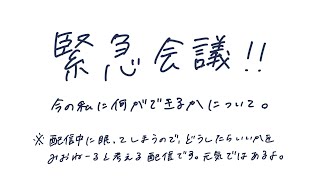 緊急会議!!
今の私に何ができるかについて。
※配信中に眠ってしまうので、どうしたらいいかを
みおねーると考える配信です。元気ではあるよ。